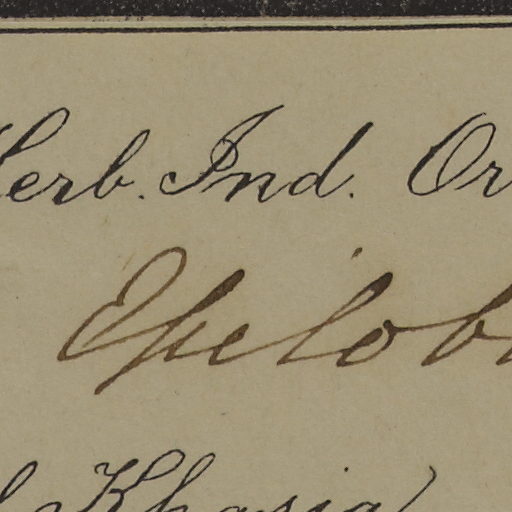 Herb. Ind. Or
Epilob
Khasia